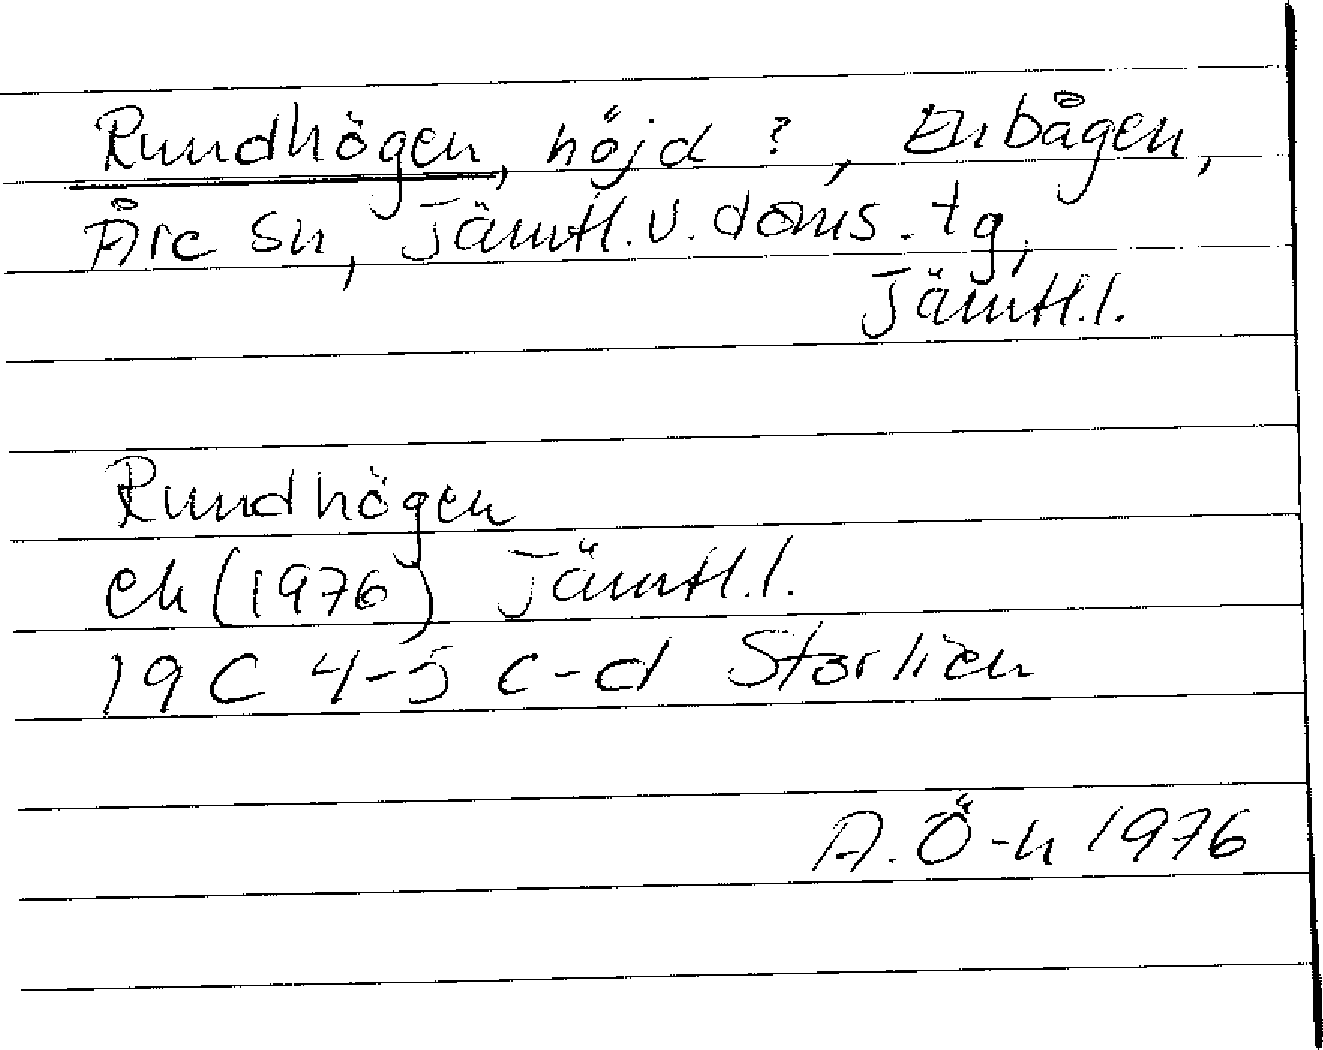 Rundhögen, höjd ?, Enbågen,
Åre sn, Jämtl.v.doms.tg,
Jämtl.l.
Rundhögen
ek (1976) Jämtl.l.
19 C 4-5 c-d Storlien
A. Ö-n 1976